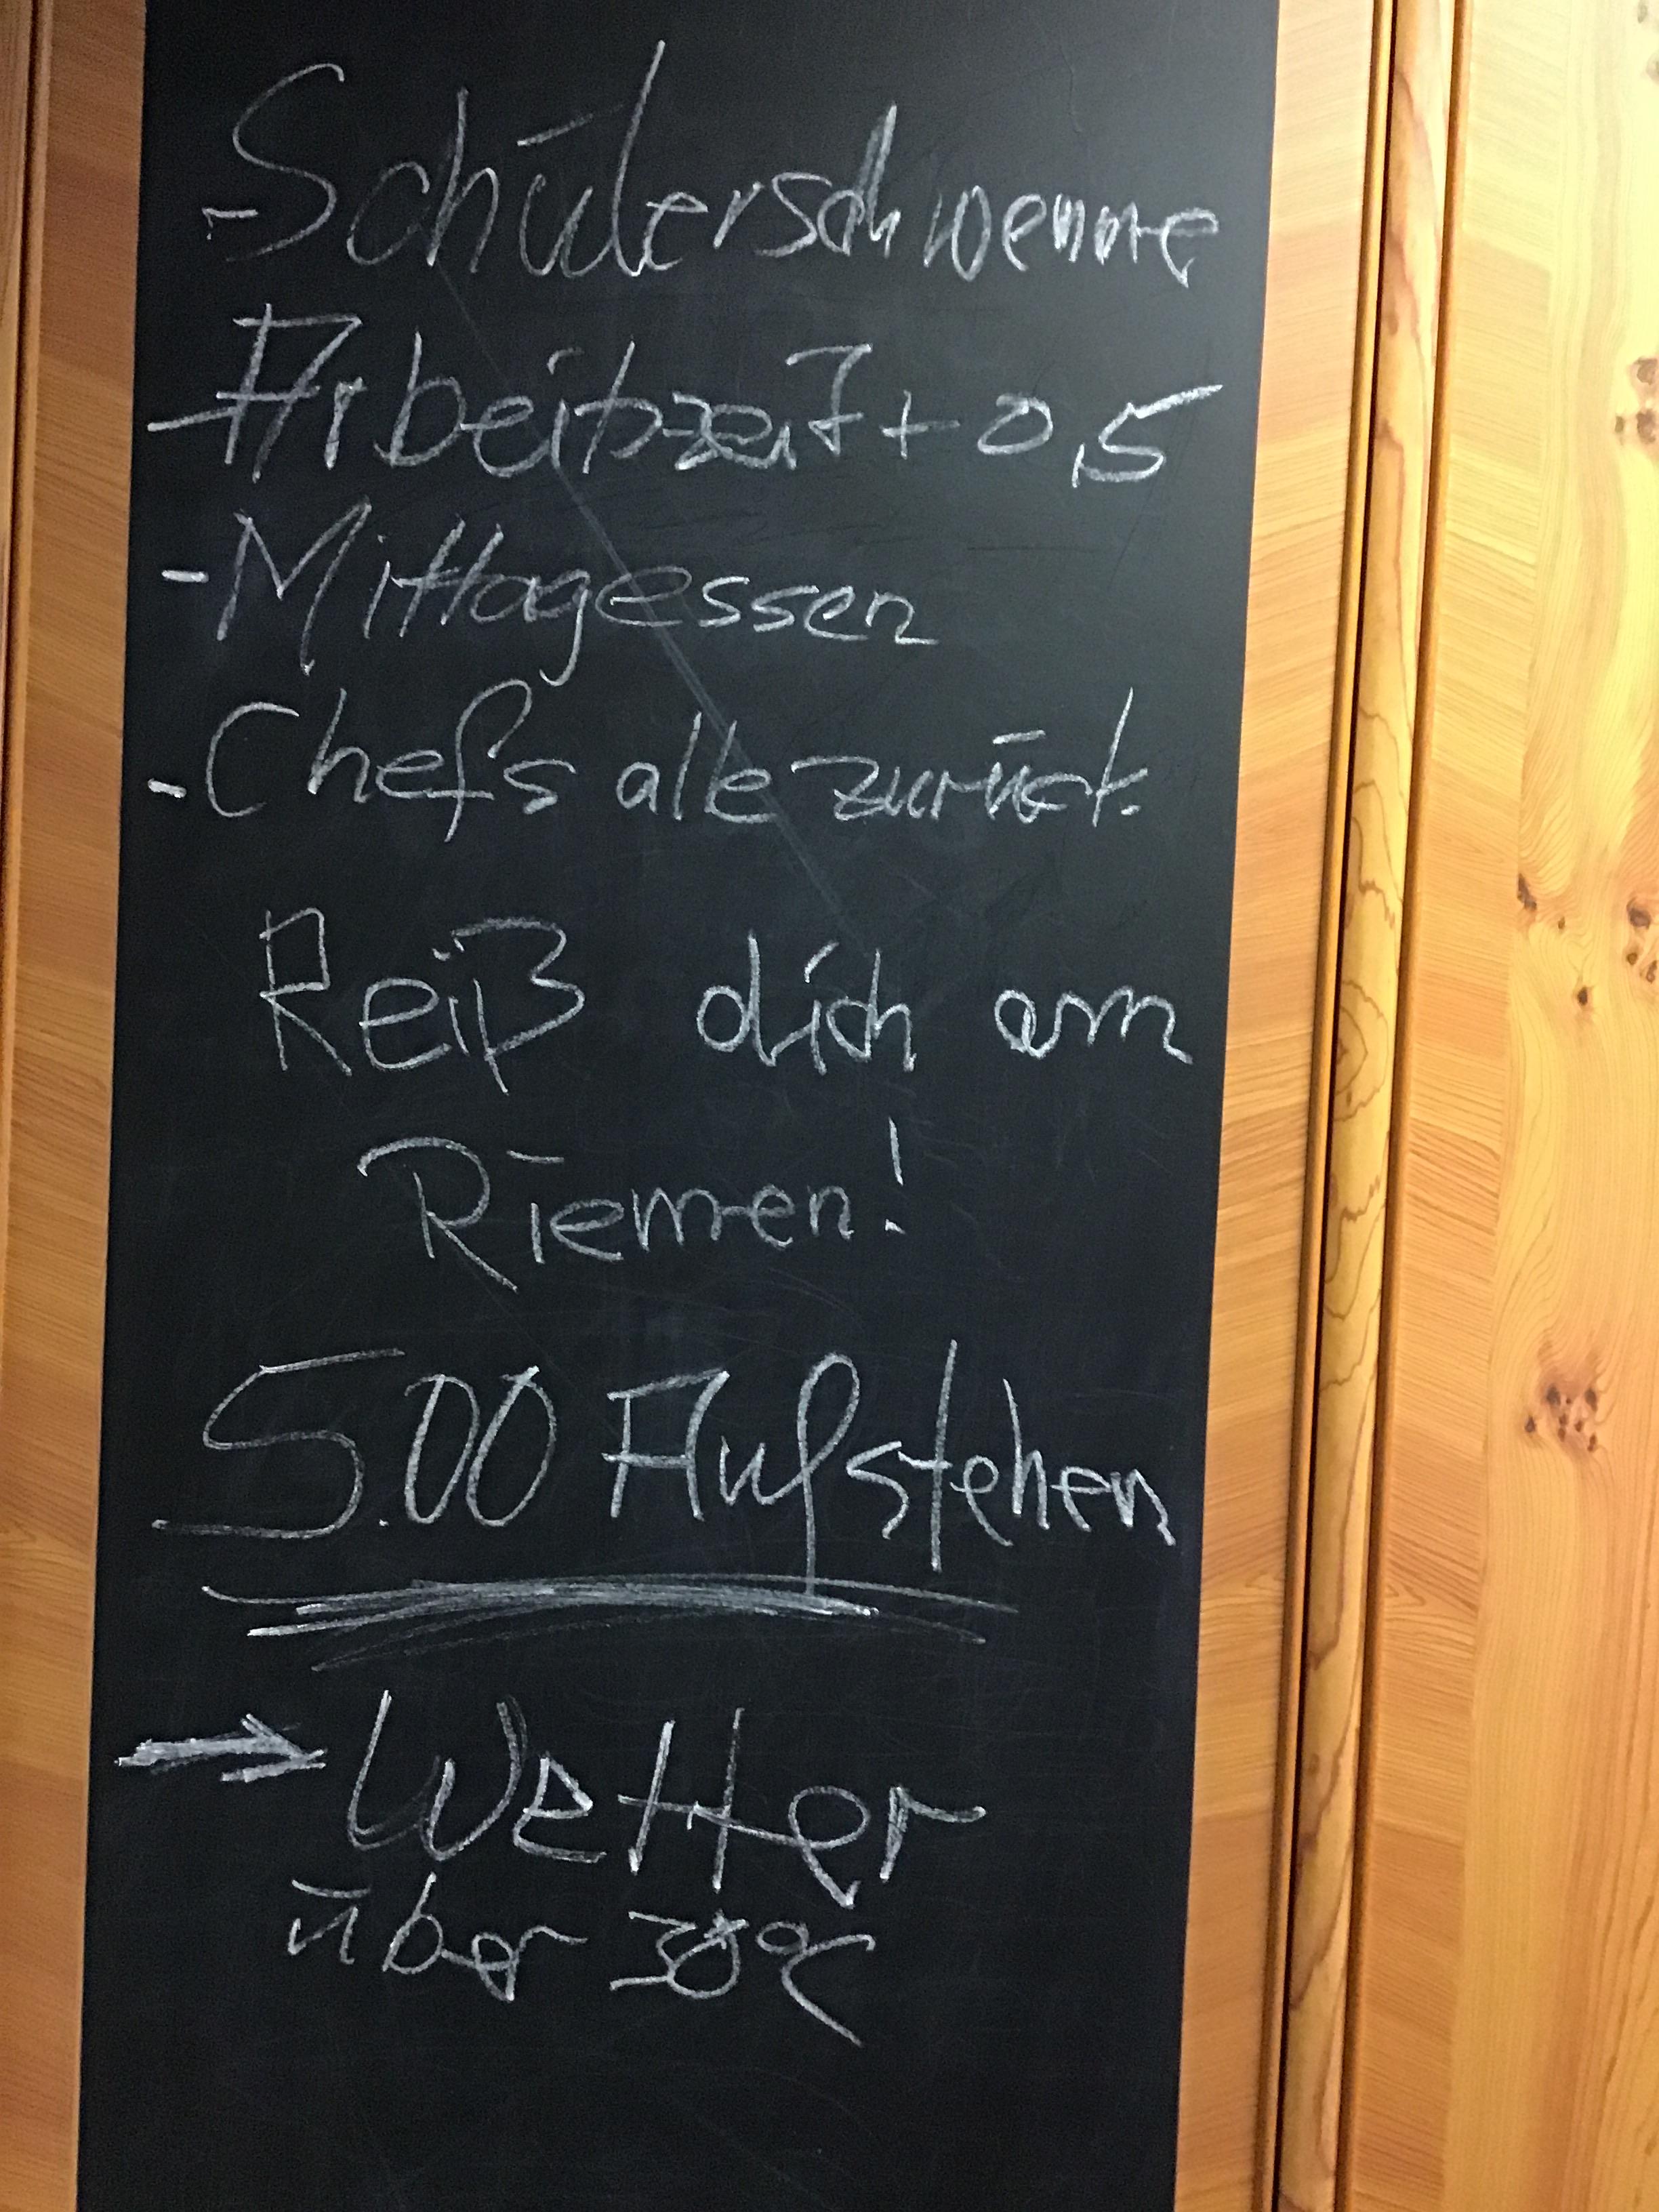 - Schülerschwemme
- Arbeitszeit + 0,5
- Mittagessen
- Chefs alle zurück.
Reiß dich am
Riemen!
5.00 Aufstehen
→ Wetter
über 30°C